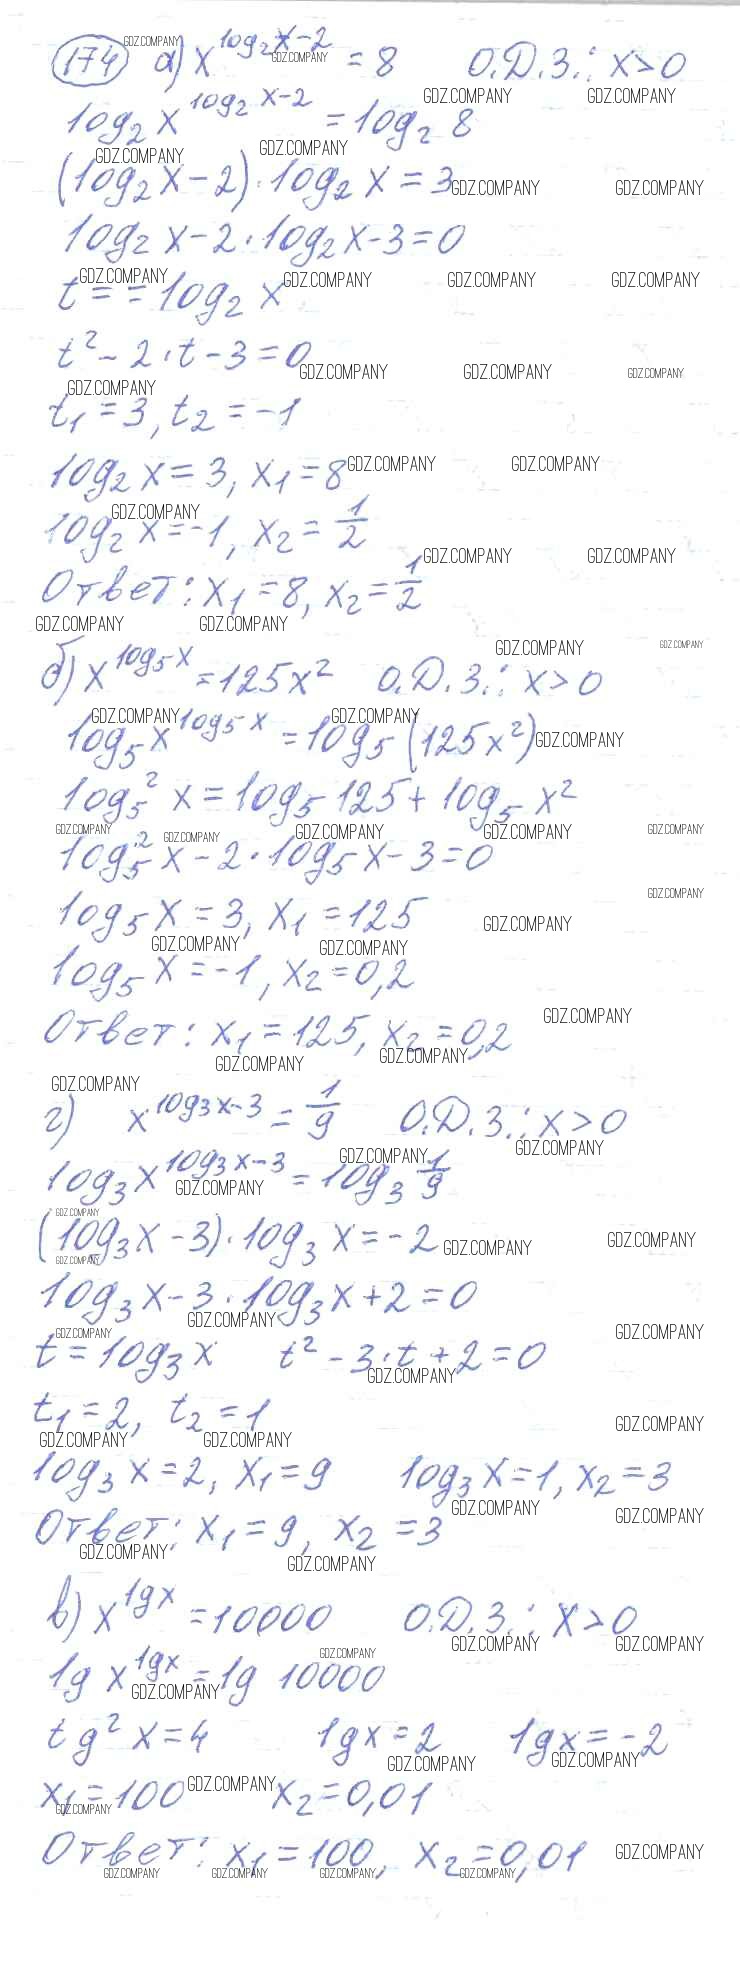 174 а) x^(log₂x-2) = 8 О.Д.З.: x>0
log₂ x^(log₂ x-2) = log₂ 8
(log₂ x - 2)·log₂ x = 3
log₂ x - 2·log₂ x - 3 = 0
t = = log₂ x
t² - 2·t - 3 = 0
t₁ = 3, t₂ = -1
log₂ x = 3, x₁ = 8
log₂ x = -1, x₂ = 1/2
Ответ: x₁ = 8, x₂ = 1/2
б) x^(log₅x) = 125x² О.Д.З.: x>0
log₅ x^(log₅ x) = log₅ (125x²)
log₅² x = log₅ 125 + log₅ x²
log₅² x - 2·log₅ x - 3 = 0
log₅ x = 3, x₁ = 125
log₅ x = -1, x₂ = 0,2
Ответ: x₁ = 125, x₂ = 0,2
г) x^(log₃x-3) = 1/9 О.Д.З.: x>0
log₃ x^(log₃x-3) = log₃ 1/9
(log₃ x - 3)·log₃ x = -2
log₃ x - 3·log₃ x + 2 = 0
t = log₃ x t² - 3·t + 2 = 0
t₁ = 2, t₂ = 1
log₃ x = 2, x₁ = 9 log₃ x = 1, x₂ = 3
Ответ: x₁ = 9, x₂ = 3
в) x^(lgx) = 10000 О.Д.З.: x>0
lg x^(lgx) = lg 10000
tg² x = 4 lgx = 2 lgx = -2
x₁ = 100 x₂ = 0,01
Ответ: x₁ = 100, x₂ = 0,01
GDZ.COMPANY